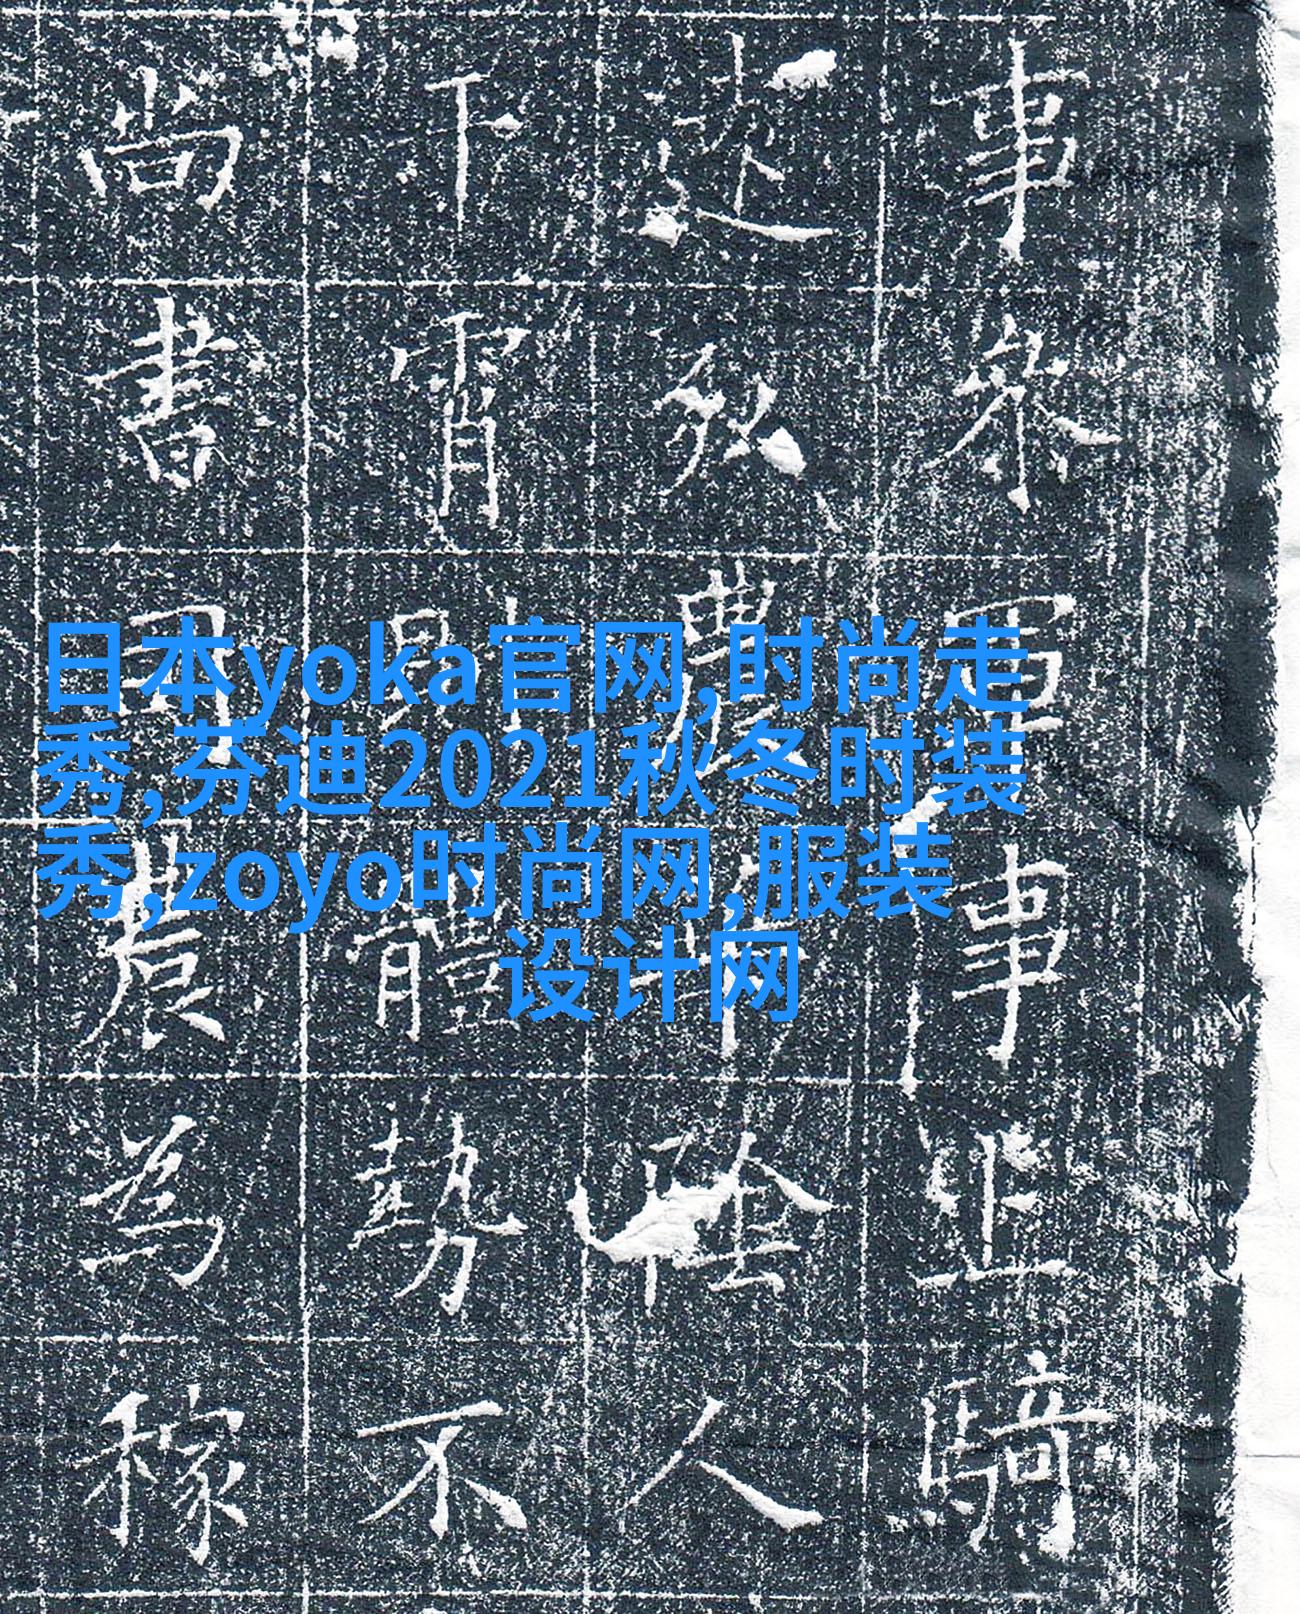 日本yoka官网,时尚走
秀,芬迪2021秋冬时装
秀,zoyo时尚网,服装
设计网
事叅軍事騎
弘農華陰人
下霄體勢不
尚書農為稼